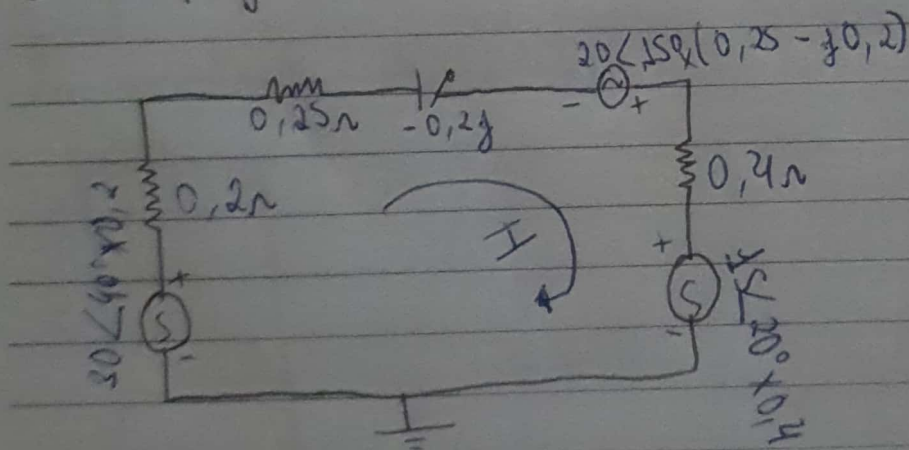 20∠15°x(0,25 - j0,2)
- +
0,25Ω
-0,2j
0,2Ω
0,4Ω
I
30∠40°x0,2
+
-
+
-
15∠20°x0,4